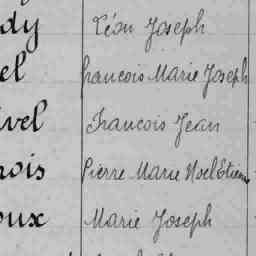 dy Léon Joseph
el francois Marie Joseph
vel Francois Jean
ois Pierre Marie Noel Etienne
oux Marie Joseph